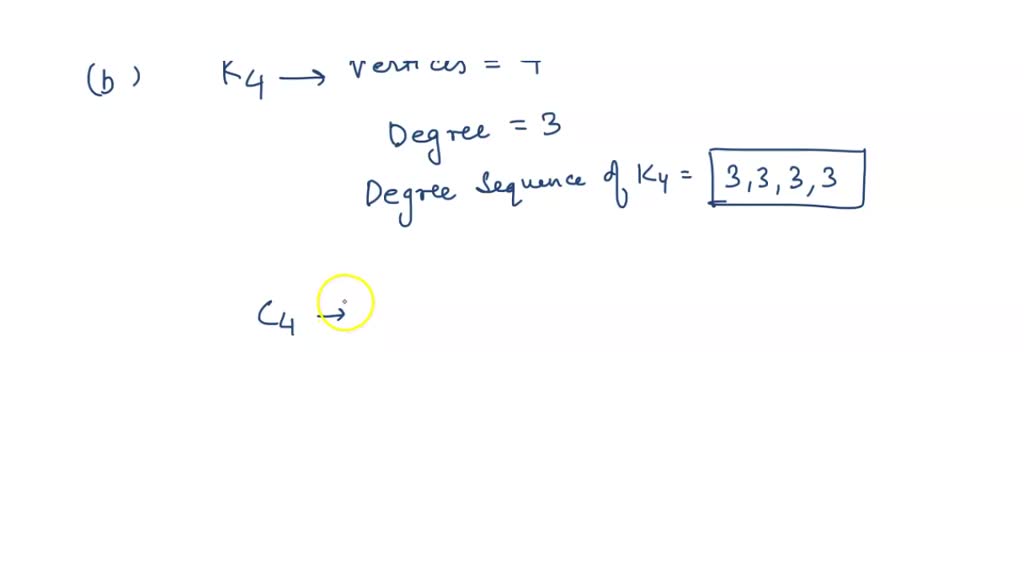 (b) K4 → Vertices = 4
Degree = 3
Degree Sequence of K4 = 3,3,3,3
C4 →